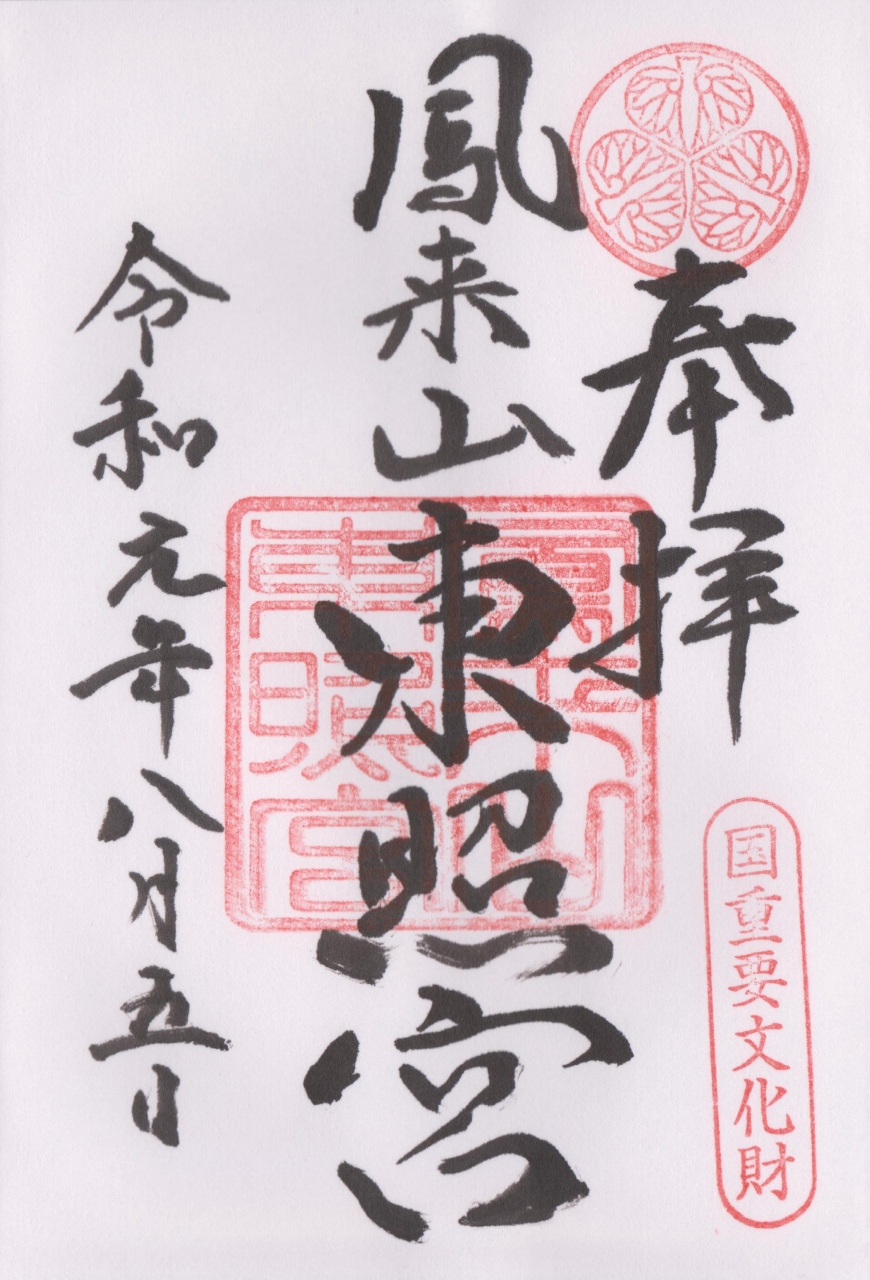 奉拝
国重要文化財
鳳来山東照宮
鳳来山
東照宮
令和元年八月五日